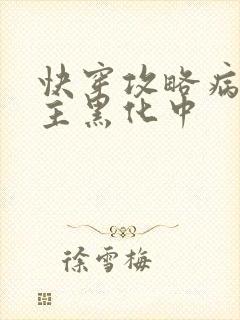 快穿攻略病
主黑化中
徐雪梅